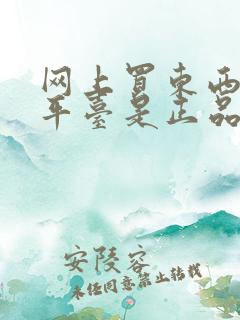 网上买东西
平臺是正品
安陵客
未经同意禁止转载